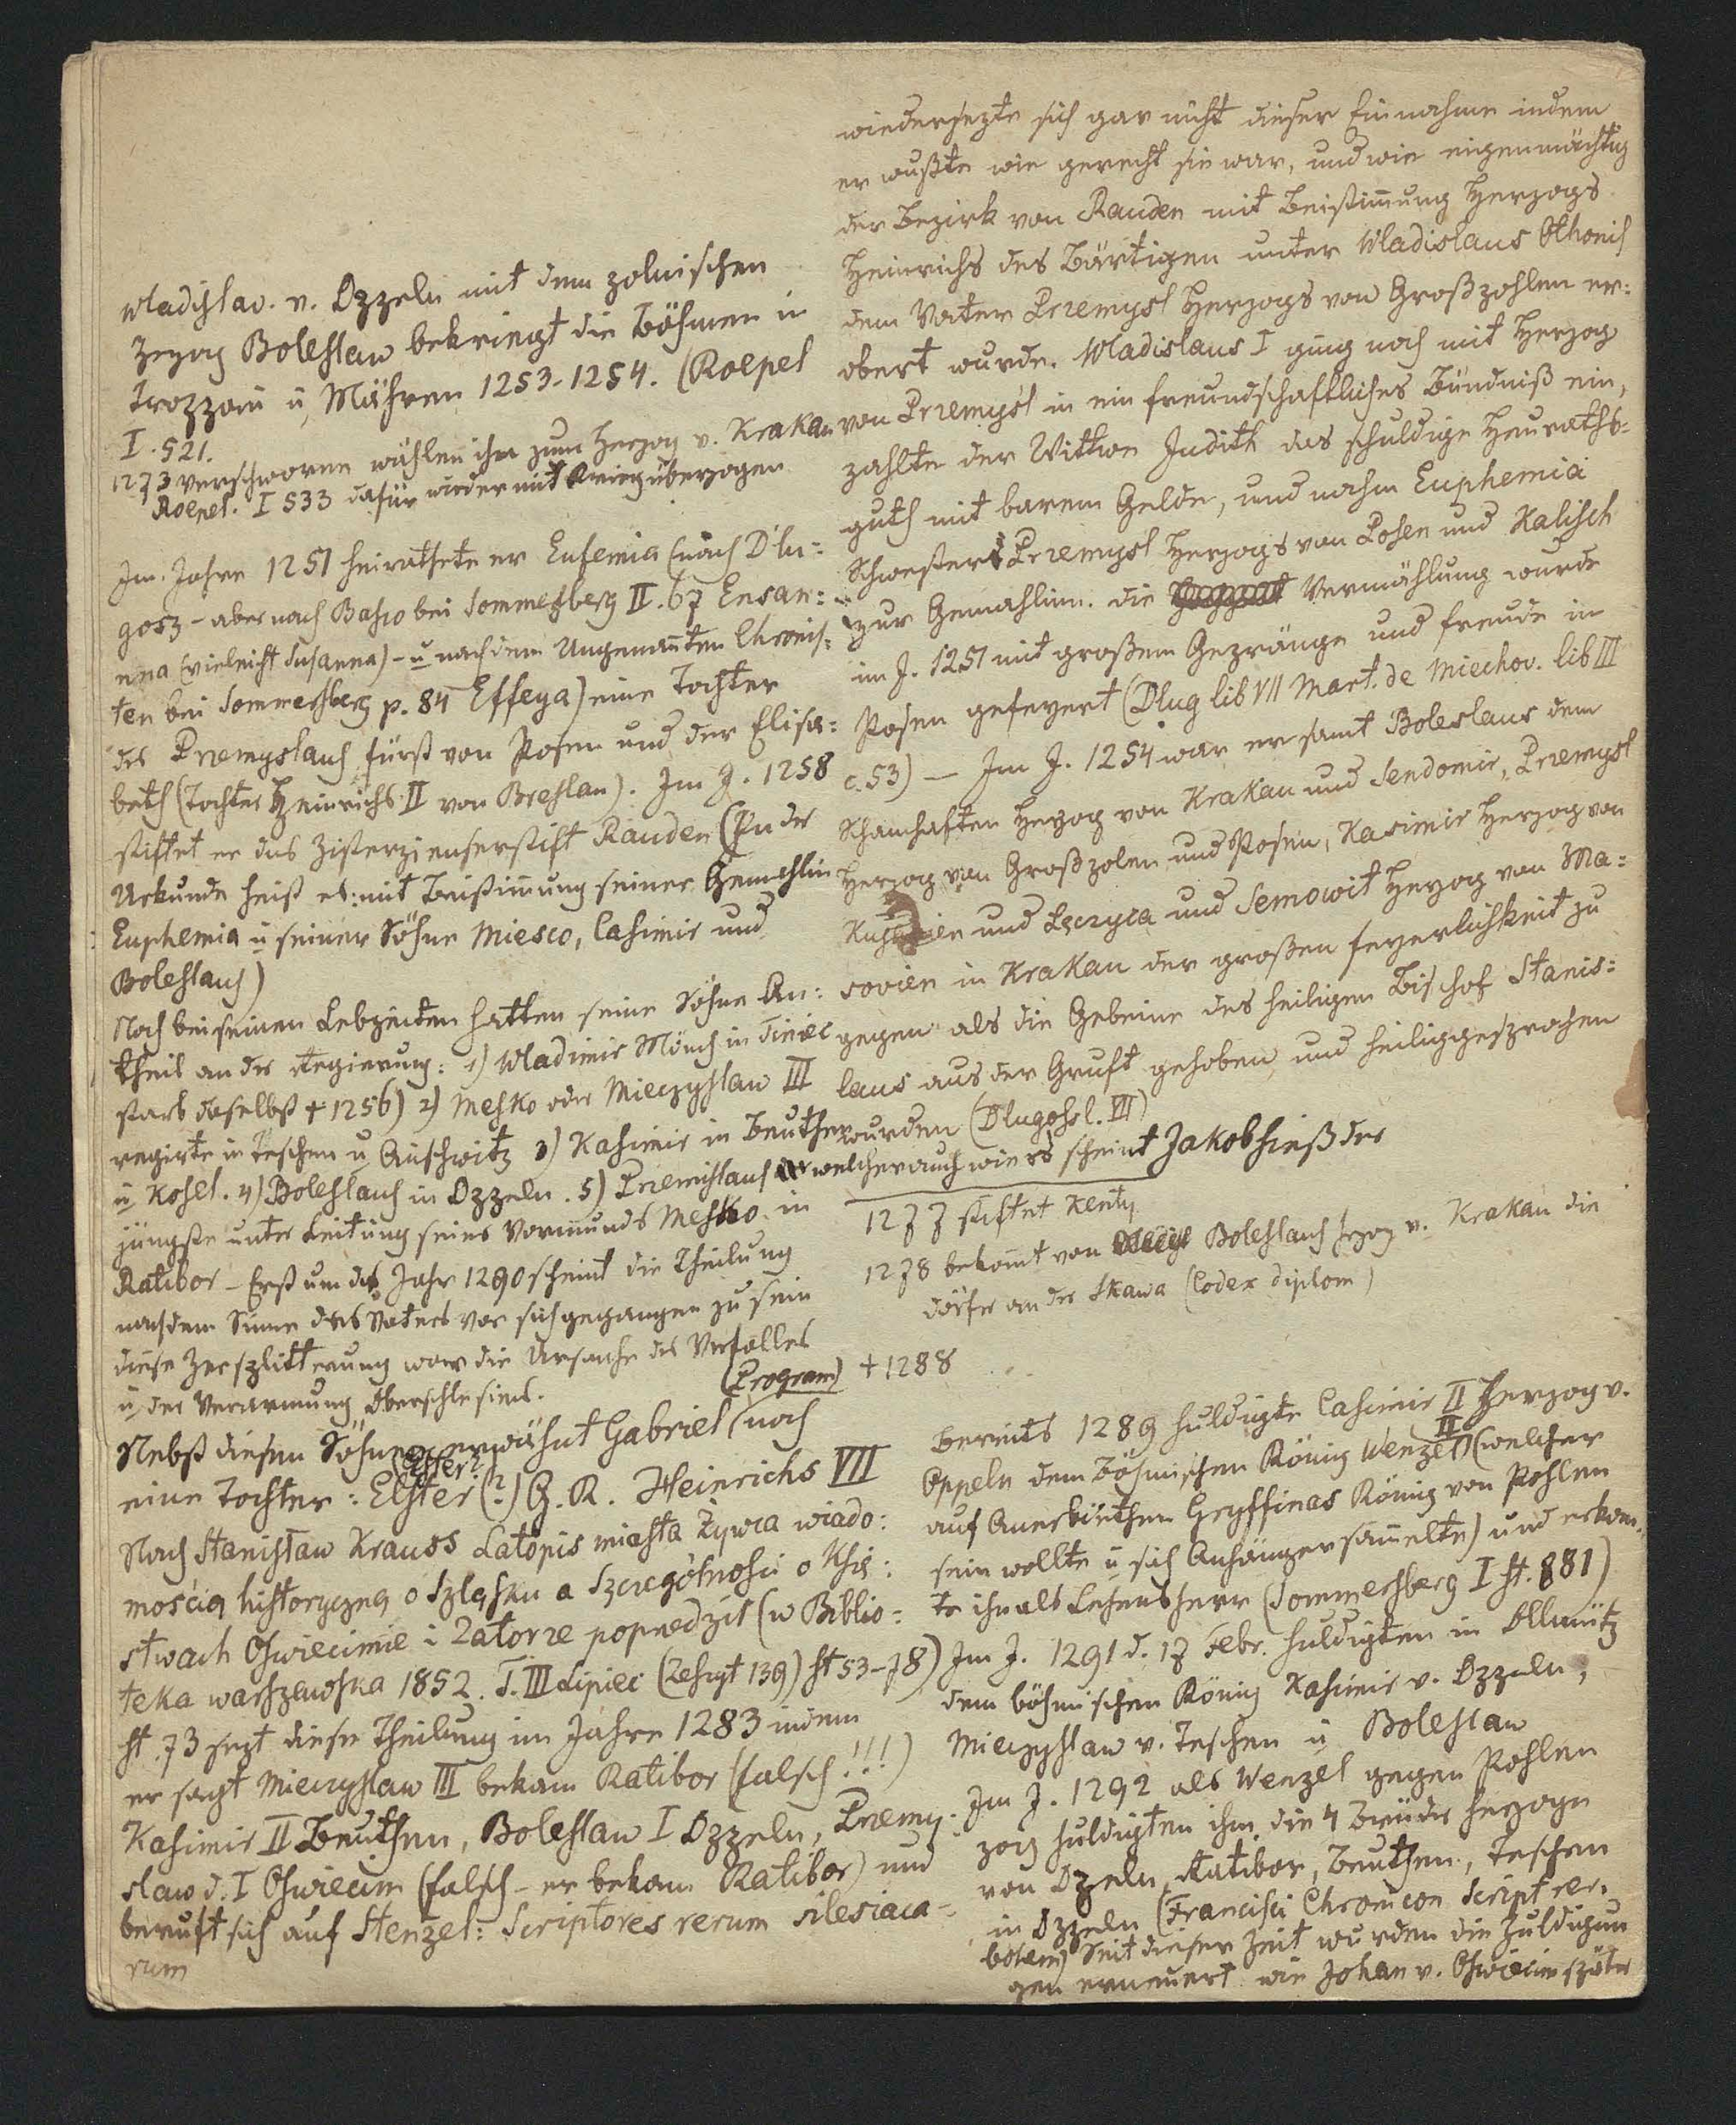 Wladislav. v. Oppeln mit dem polnischen
Hezog Boleslaw bekriegt die Böhmen in
Troppau u Mähren 1253-1254. (Roepel
I. 521.
1273 verschworene wählen ihn zum Herzog v. Krakau
Roepel. I 533 dafür wieder mit Krieg überzogen
Im Jahre 1251 heirathete er Eufemia (nach Dlu=
gosz - aber nach Basco bei Sommersberg II. 67 Ensan=
nna (vieleicht Susanna) - u nach dem Ungenanten Chronis=
ten bei Sommersberg p. 84 Effeya) eine Tochter
des Przemyslaus fürst von Posen und der Elisa=
beth (Tochter Heinrichs II von Breslau). Im J. 1258
stiftet er das Zisterzienserstift Rauden (In der
Urkunde heiß es: mit Beistimung seiner Gemahlin
Euphemia u seiner Söhne Miesco, Casimir und
Boleslaus)
Noch bei seinen Lebzeiten hatten seine Söhne An=
theil an der Regierung: 1) Wladimir Mönch in Tiniec
starb daselbst + 1256) 2) Mesko oder Mieczyslaw III
regirte in Teschen u Auschwitz 3) Kasimir in Beuthen
u Kosel. 4) Boleslaus in Oppeln. 5) Przemislaus welcher auch wie es scheint Jakob hieß der
jüngste unter Leitung seines Vormunds Mesko in
Ratibor - Erst um das Jahr 1290 scheint die Theilung
nach dem Sinne des Vaters vor sich gegangen zu sein
diese Zersplitterung war die Ursache des Verfalles
u der Verarmung Oberschlesiens. (Program)
Nebst diesen Söhnen erwähnt Gabriel noch
Esther?
eine Tochter: Elster (?) G. R. Heinrichs VII
Nach Stanisław Krauss Latopis miasta Żywca wiado=
mością historyczną o Szląsku a szczegółności o Ksis=
stwach Oswiecimie i Zatorze poprzedził (w Biblio=
teka warszawska 1852. T. III Lipiec (Zeszyt 139) st 53-78)
st. 73 sezt diese Theilung im Jahre 1283 indem
er sagt Mieczyslaw III bekam Ratibor (falsch!!!)
Kasimir II Beuthen, Boleslaw I Oppeln, Przemy=
slaw d. I Oswiecim (falsch - er bekam Ratibor) und
beruft sich auf Stenzel: Scriptores rerum silesiaca=
rum
wiedersezte sich gar nicht dieser Einnahme indem
er wußte wie gerecht sie war, und wie eigenmächtig
der Bezirk von Rauden mit Beistimung Herzogs
Heinrichs des Bärtigen unter Wladislaus Othonis
dem Vater Przemysl Herzogs von Großpohlen er=
obert wurde. Wladislaus I ging noch mit Herzog
von Przemysl in ein freundschaftliches Bündniß ein,
zahlte der Wittwe Judith das schuldige Heuraths=
guth mit barem Gelde, und nahm Euphemia
Schwester Przemysl Herzogs von Posen und Kalisch
zur Gemahlinn. die Vermählung wurde
im J. 1251 mit großem Gepränge und freude in
Posen gefeyert (Dlug lib VII Mart. de Miechov. lib III
c. 53) — Im J. 1254 war er samt Boleslaus dem
Schamhaften Herzog von Krakau und Sendomir, Przemysl
Herzog von Großpolen und Posen, Kasimir Herzog von
Kujavien und Lęczyca und Semowit Herzog von Ma=
sovien in Krakau der großen feyerlichkeit zu
gegen als die Gebeine des heiligen Bischof Stanis=
laus aus der Gruft gehoben, und heiliggesprochen
wurden (Dlugoss l. VII)
1277 stiftet Kenty
1278 bekomt von Boleslaus hzog v. Krakau die
dörfer an der Skawa (Codex diplom)
+ 1288
Bereits 1289 huldigte Casimir II Herzog v.
Oppeln dem Böhmischen König Wenzel II (welcher
auf Anerbiethen Gryffinas König von Pohlen
sein wollte u sich Anhänger samelte) und erkan=
te ihn als Lehensherr (Sommersberg I st. 881)
Im J. 1291 d. 17 Febr. huldigten in Ollmütz
dem böhmischen König Kasimir v. Oppeln,
Mieczyslaw v. Teschen u Boleslaw
Im J. 1292 als Wenzel gegen Pohlen
zog huldigten ihm die 4 Brüder herzoge
von Opeln, Ratibor, Beuthen, Teschen
in Oppeln (Francisci Chronicon Script rer.
bohem) Seit dieser Zeit wurden die Huldigun
gen erneuert wie Johan v. Oswiecim später